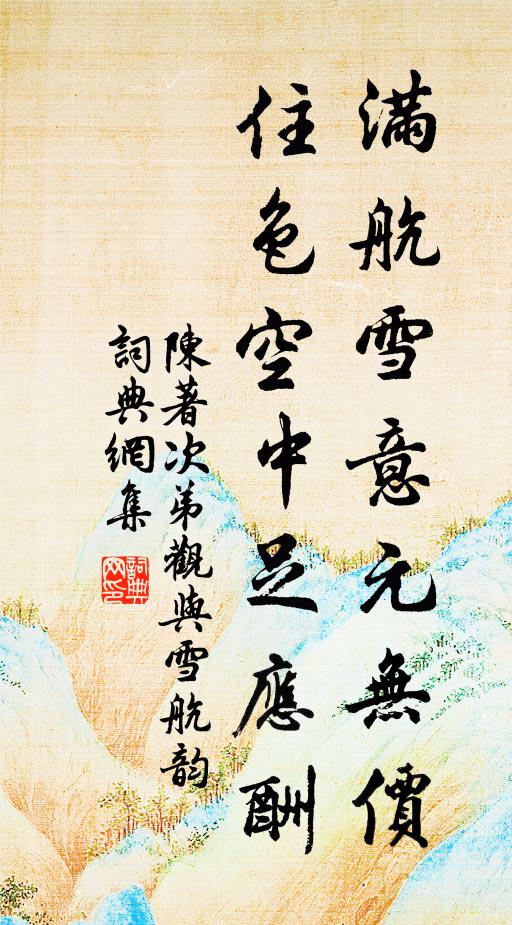 滿航雪意元無價
住色空中足應酬
陳著次弟觀與雪航韵
詞典網集
詞典网印